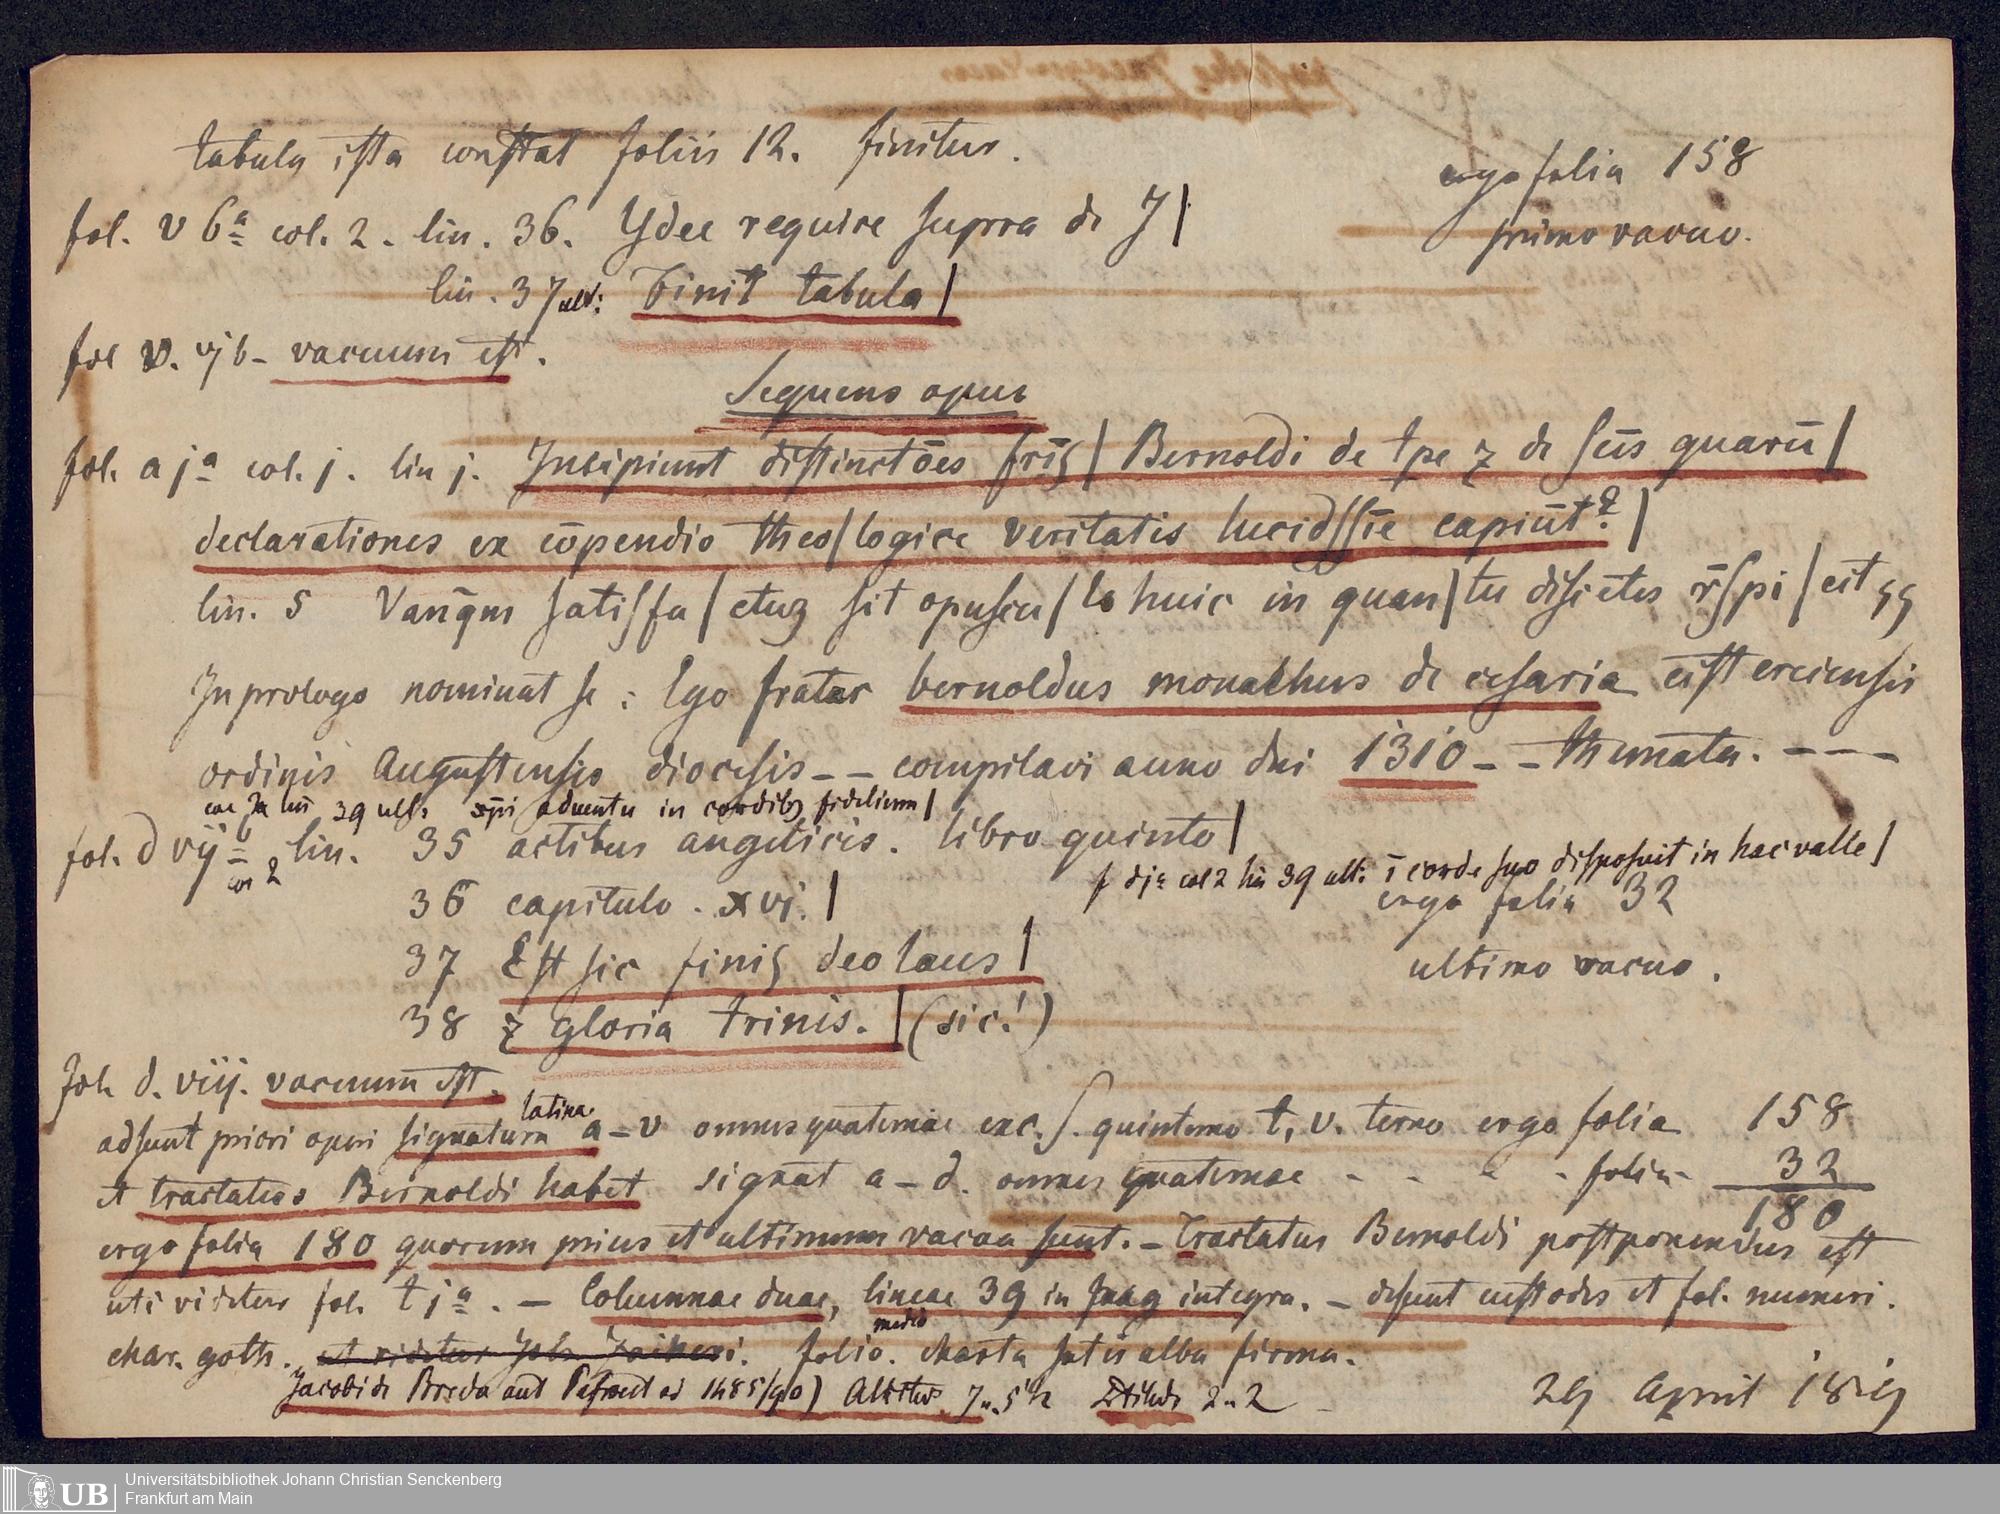 tabula ista constat foliis 12. finitur.
ergo folia 158
primo vacuo.
fol. v 6a col. 2. lin. 36. Ydee require supra de J|
lin. 37 ult: Finit tabula|
fol v. vj b - vacuum est.
Sequens opus
fol. a ja col. j. lin j. Incipiunt distinctōes frīs| Bernoldi de tpe z de scīs quarū|
declarationes ex cōpendio theo|logice veritatis lucidssīe capiūt2|
lin. 5 satisfa|ctuz sit opuscu|lo huic in quan|tu
In prologo nominat se: Ego frater bernoldus monachus de cesaria cisterciensis
ordinis Augustensis diocesis -- compilavi anno dni 1310 -- themata. ----
lin 39 ult. xpi aduentu in cordibz fidelium|
fol. d vij b col 2 lin. 35 actibus angelicis. libro quinto|
f dja col 2 lin 39 ult: ī corde suo disposuit in hac valle|
36 capitulo. xvj.|
ergo folia 32
37 Est sic finis deo laus|
ultimo vacuo.
38 z gloria trinis.| (sic!)
fol. d. viij. vacuum est.
adsunt priori operi signatura latina a-v omnes quaternae exc. s. quinterno t, v. terno ergo folia 158
et tractatus Bernoldi habet signat a-d. omnes quaternae - - - - folia - 32
180
ergo folia 180 quorum prius et ultimum vacua sunt. - Tractatus Bernoldi postponendus est
uti videtur fol. t ja. - Columnae duae, lineae 39 in pag integra. - desunt custodes et fol. numeri.
char. goth. ut videtur Joh. folio medio. charta satis alba firma.
Jacobi de Breda aut Pafraet 1485/90) Altitudo 7" 5"' 2" 2
29 April
Universitätsbibliothek Johann Christian Senckenberg
Frankfurt am Main
UB